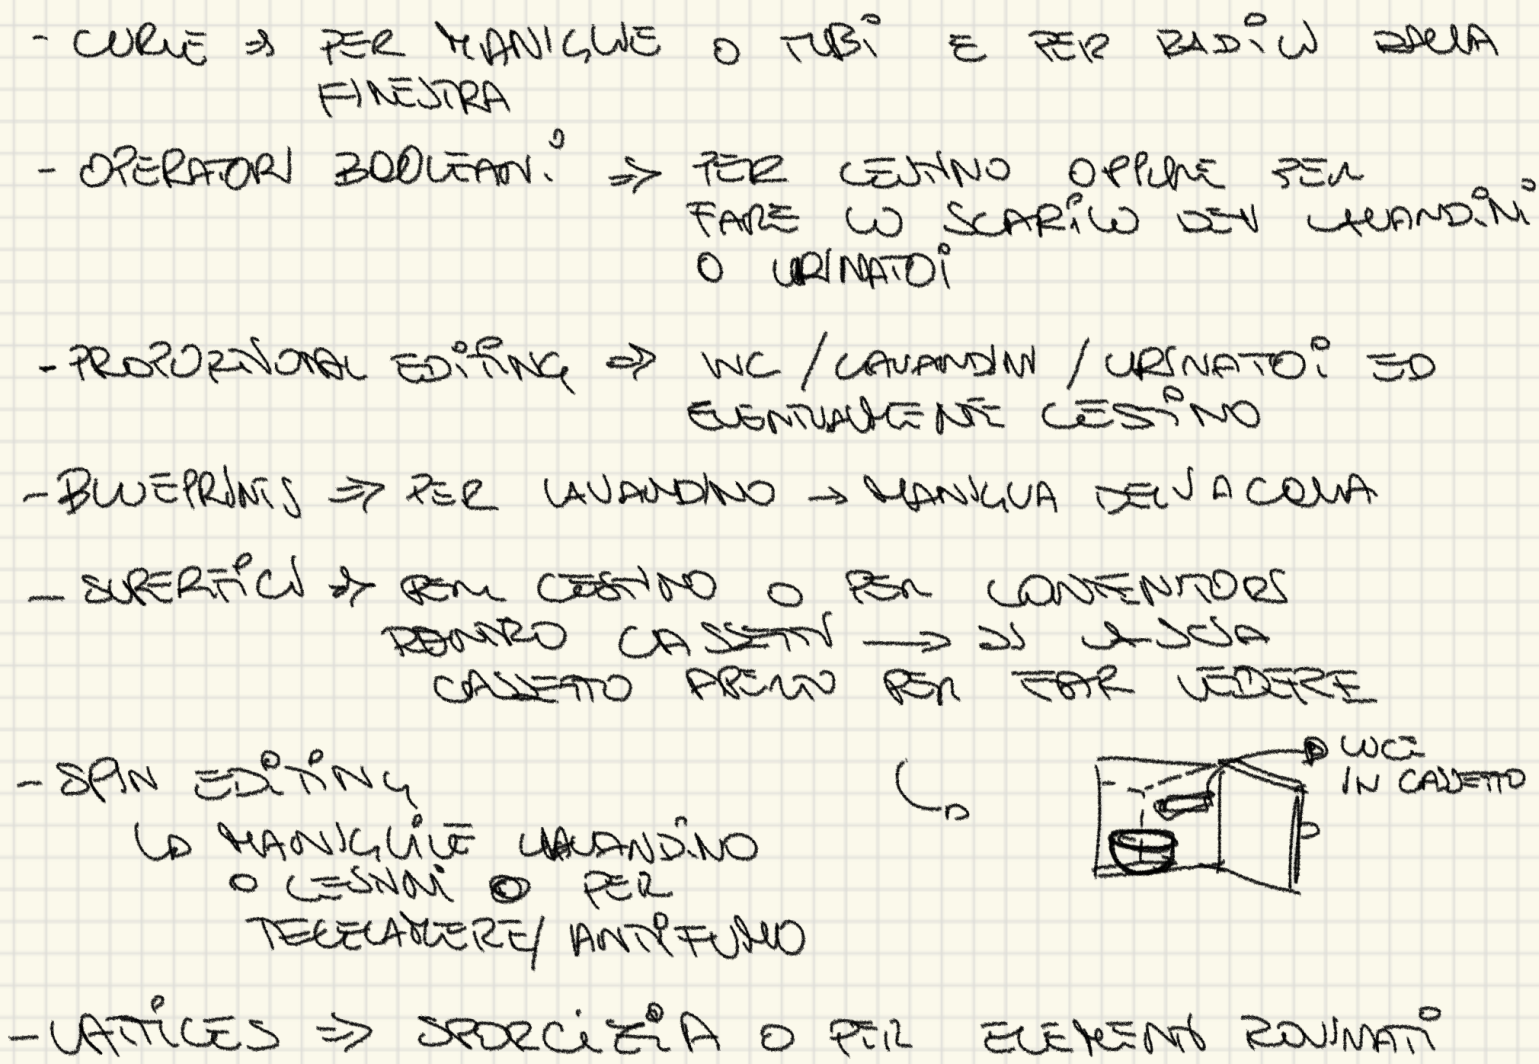 - CURVE => PER MANIGLIE O TUBI E PER DALLA
FINESTRA
- OPERATORI BOOLEANI => PER CESTINO OPPURE PER
FARE LO SCARICO DEI LAVANDINI
O URINATOI
- PROPORZIONAL EDITING => WC / LAVANDINI / URINATOI ED
EVENTUALMENTE CESTINO
- BLUEPRINTS => PER LAVANDINO → MANIGLIA DELL'ACQUA
- SUPERFICI => PER CESTINO O PER CONTENITORI
DENTRO CASSETTI → SI LASCIA
CASSETTO APERTO PER FAR VEDERE
LUCE
IN CASSETTO
- SPIN EDITING
↳ MANIGLIE LAVANDINO
O CESTINI O PER
TELECAMERE/ ANTIFUMO
- LATTICES => SPORCIZIA O PER ELEMENTI ROVINATI